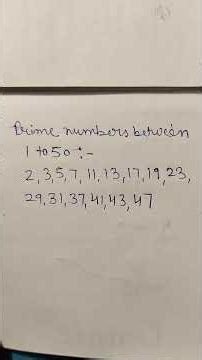 Prime numbers between
1 to 50 :-
2,3,5,7,11,13,17,19,23,
29,31,37,41,43,47